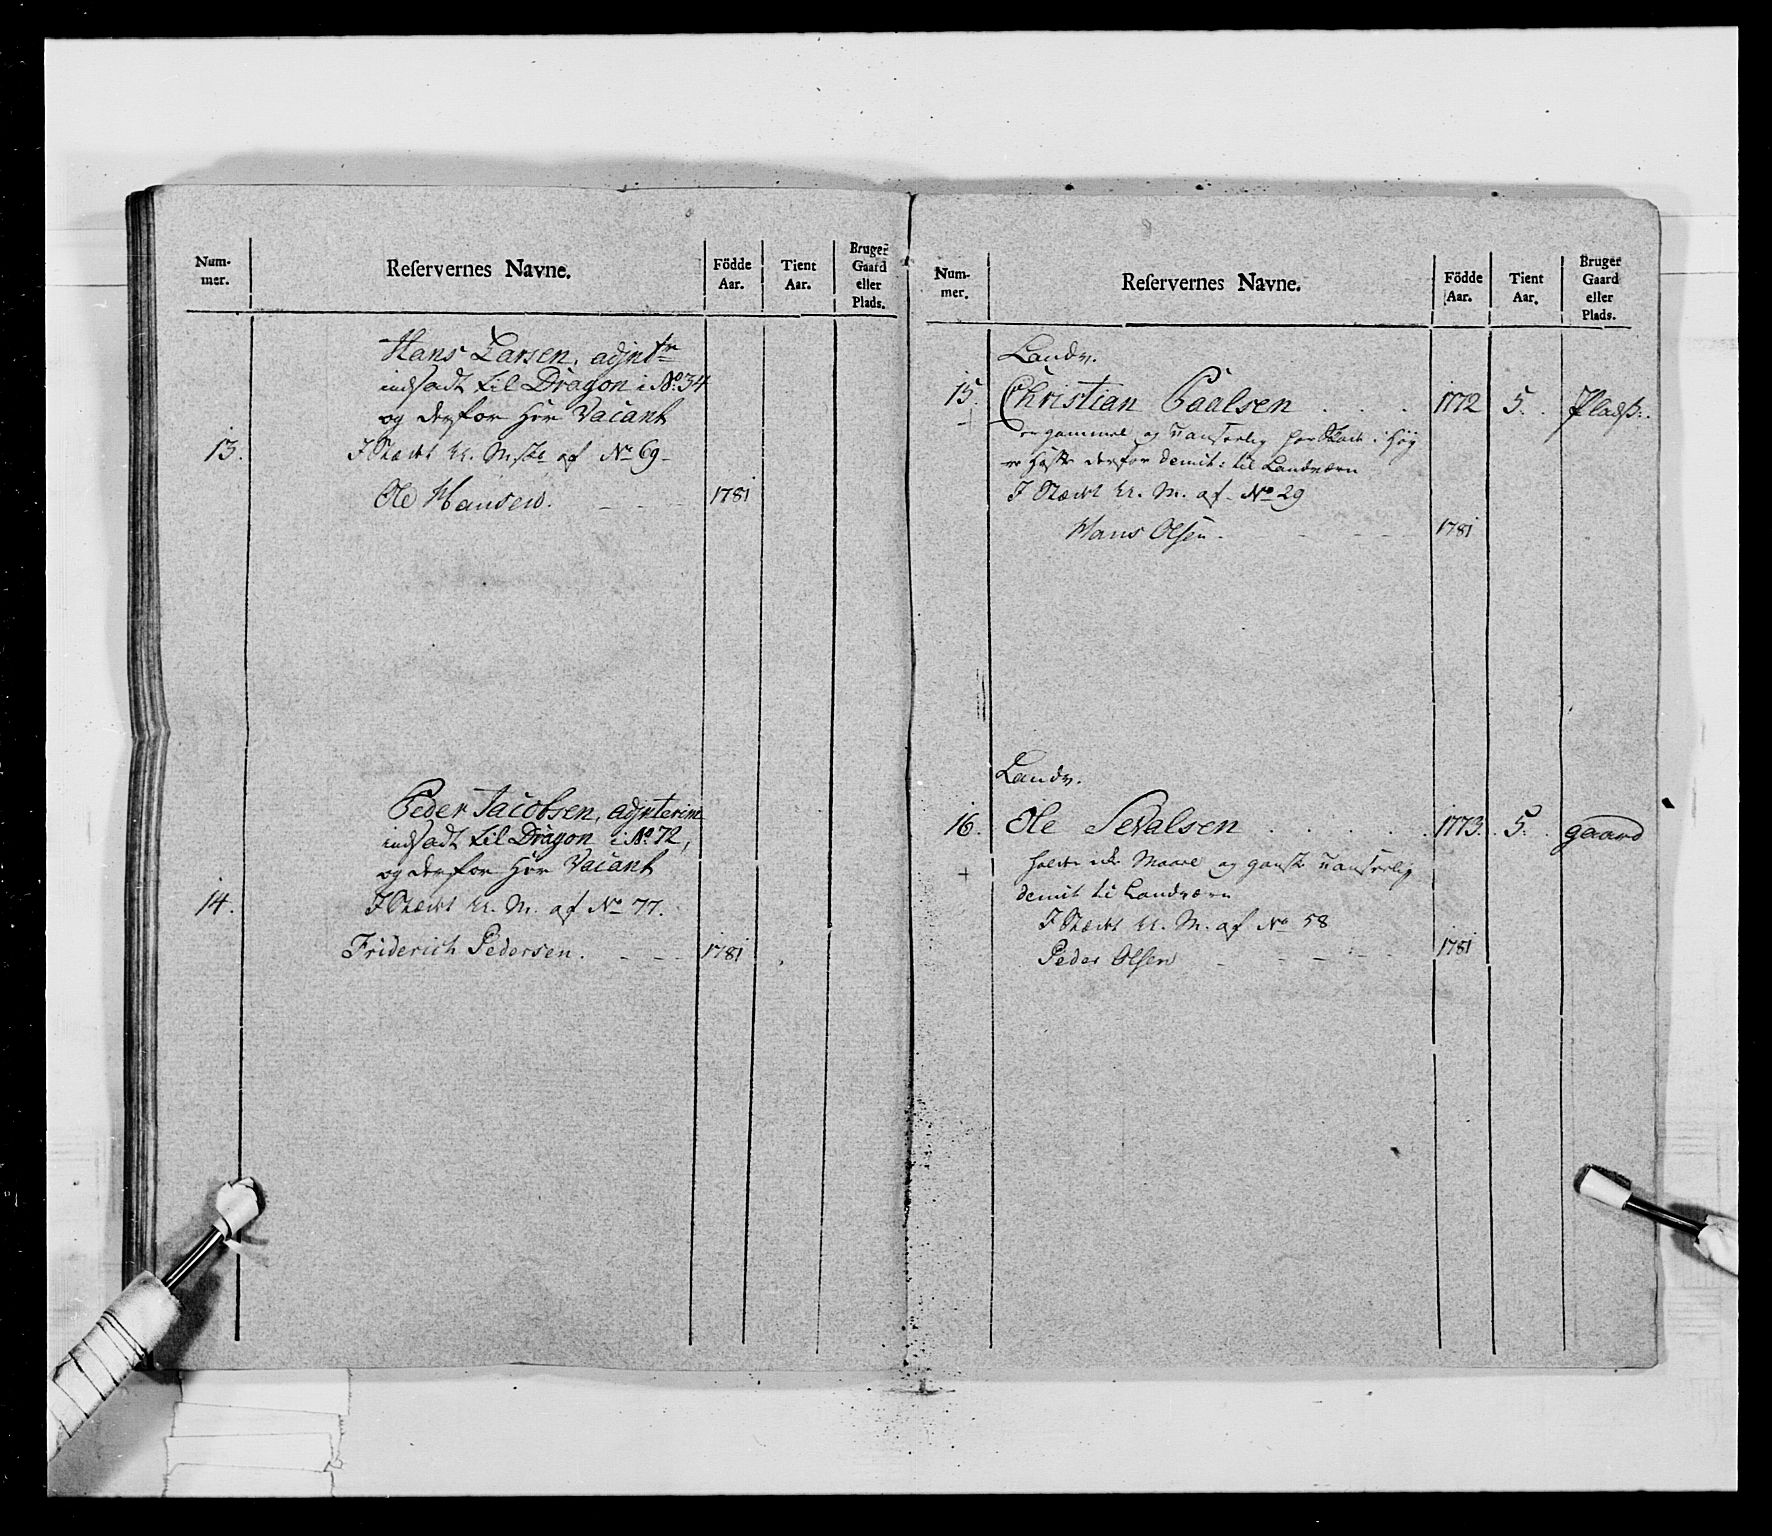 Num-
mer.
Reſervernes Navne.
Födde
Aar.
Tient
Aar.
Bruger
Gaard
eller
Plads.
Hans Larsen, adjnt
indsadt til Dragon i No. 34
og derfor hør Vacant
13.
I Stædet af No 69
Ole Hansen. 1781
Peder Jacobsen, adjnterim
indsadt til Dragon i No. 72,
og derfor hør Vacant
14.
I Stædet M. af No 77.
Friderich Pedersen. 1781
Num-
mer.
Reſervernes Navne.
Födde
Aar.
Tient
Aar.
Bruger
Gaard
eller
Plads.
Landv.
15. Christian Paalsen . . . 1772 5. Pladß.
er gammel og uanseelig har Skade i Høy
re derfor demit: til Landværn
I Stædet M. af No 29
Hans Olsen. 1781
Landv.
16. Ole Sevalsen . . . . . 1773. 5. gaard
holder ikke Maal og ganske uanseelig
+
demit til Landværn
I Stædet M. af No 58
Peder Olsen 1781